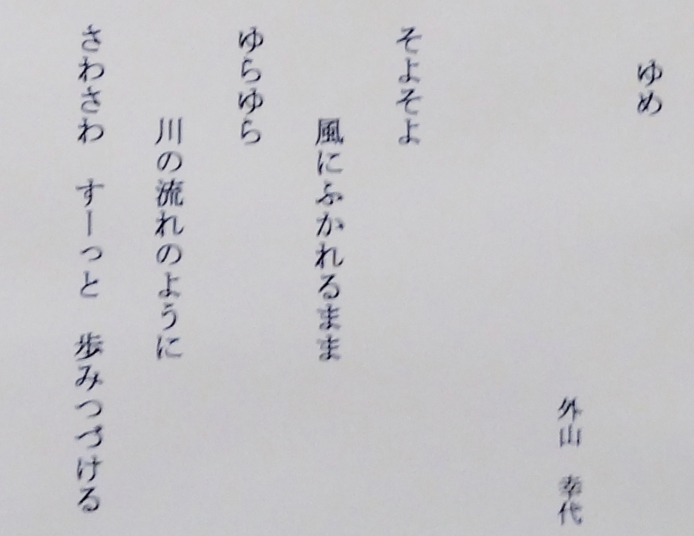 ゆめ
外山　幸代
そよそよ
風にふかれるまま
ゆらゆら
川の流れのように
さわさわ　すーっと　歩みつづける